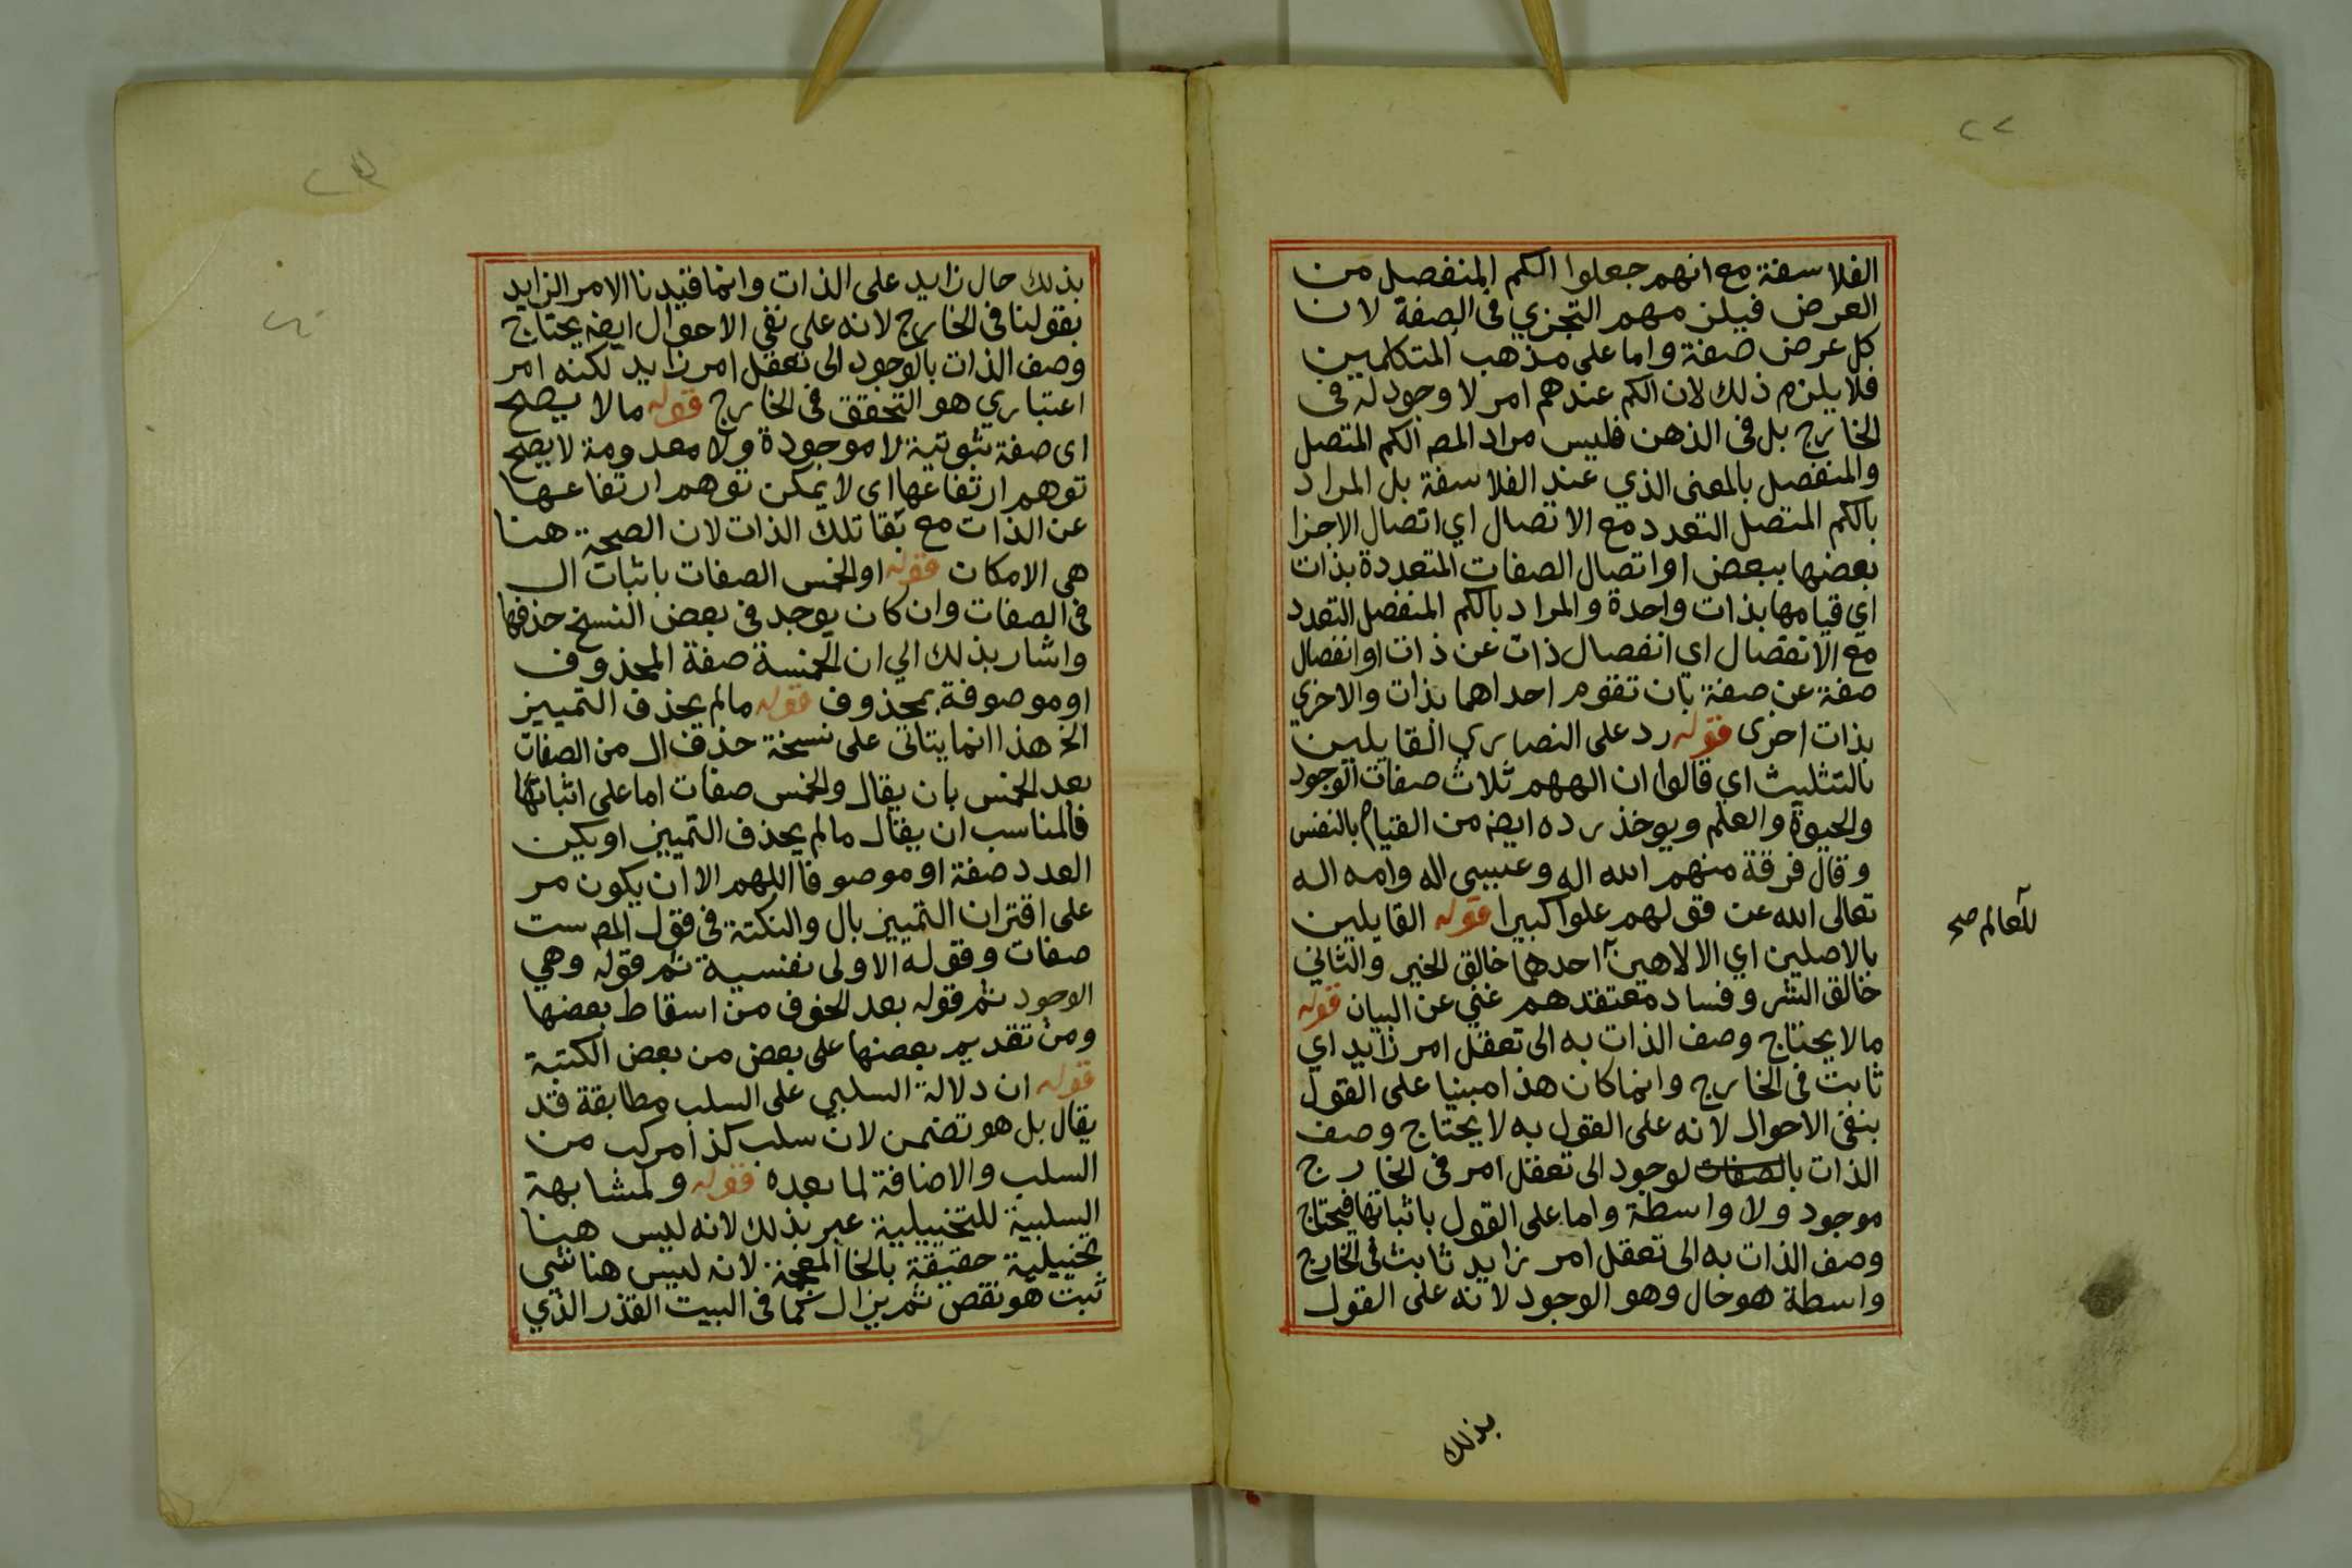 ٢٢
الفلاسفة مع انهم جعلوا الكم المنفصل من
العرض فيلزمهم التجزي فى الصفة لان
كل عرض صفة واما على مذهب المتكلمين
فلا يلزم ذلك لان الكم عندهم امر لا وجود له فى
الخارج بل فى الذهن فليس مراد المص الكم المتصل
والمنفصل بالمعنى الذي عند الفلاسفة بل المراد
بالكم المتصل التعدد مع الاتصال اي اتصال الاجزا
بعضها ببعض او اتصال الصفات المتعددة بذات
اي قيامها بذات واحدة والمراد بالكم المنفصل التعدد
مع الانفصال اي انفصال ذات عن ذات او انفصال
صفة عن صفة بان تقوم احداهما بذات والاخرى
بذات اخرى قوله رد على النصارى القايلين
بالتثليث اي قالوا ان الههم ثلاث صفات الوجود
والحيوة والعلم ويوخذ رده ايضه من القيام بالنفس
وقال فرقة منهم الله اله وعيسى اله وامه اله
تعالى الله عن قولهم علوا كبيرا قوله القايلين
بالاصلين اي الالاهين احدهما خالق الخير والثاني
للعالم صح
خالق الشر وفساد معتقدهم غني عن البيان قوله
مالا يحتاج وصف الذات به الى تعقل امر زايد اي
ثابت فى الخارج وانما كان هذا مبنيا على القول
بنفى الاحوال لانه على القول به لا يحتاج وصف
الذات بالصفات لوجود الى تعقل امر فى الخارج
موجود ولا واسطة واما على القول باثباتها فيحتاج
وصف الذات به الى تعقل امر زايد ثابت فى الخارج
واسطة هو حال وهو الوجود لانه على القول
بذلك
بذلك حال زايد على الذات وانما قيدنا الامر الزايد
بقولنا فى الخارج لانه على نفي الاحوال ايضه يحتاج
وصف الذات بالوجود الى تعقل امر زايد لكنه امر
اعتباري هو التحقق فى الخارج قوله مالا يصح
اى صفة ثبوتية لا موجودة ولا معدومة لا يصح
توهم ارتفاعها اى لا يمكن توهم ارتفاعها
عن الذات مع بقا تلك الذات لان الصحة هنا
هى الامكان قوله او الخمس الصفات باثبات ال
فى الصفات وان كان يوجد فى بعض النسخ حذفها
واشار بذلك الي ان الخمسة صفة المحذوف
او موصوفة بمحذوف قوله مالم يحذف التمييز
الخ هذا انما يتاتى على نسخة حذف ال من الصفات
بعد الخمس بان يقال والخمس صفات اما على اثباتها
فالمناسب ان يقال مالم يحذف التمييز او يكن
العدد صفة او موصوفا اللهم الا ان يكون مر
على اقتران التمييز بال والنكتة فى قول المص ست
صفات وقوله الاولى نفسية ثم قوله وهي
الوجود ثم قوله بعد الخوف من اسقاط بعضها
ومن تقديم بعضها على بعض من بعض الكتبة
قوله ان دلالة السلبي على السلب مطابقة قد
يقال بل هو تضمن لان سلب كذا مركب من
السلب والاضافة لما بعده قوله ولمشابهة
السلبية للتخييلية عبر بذلك لانه ليس هنا
تخييلية حقيقة بالخا المعجمة لانه ليس هنا شي
ثبت هو نقص ثم يزال كما فى البيت القذر الذي